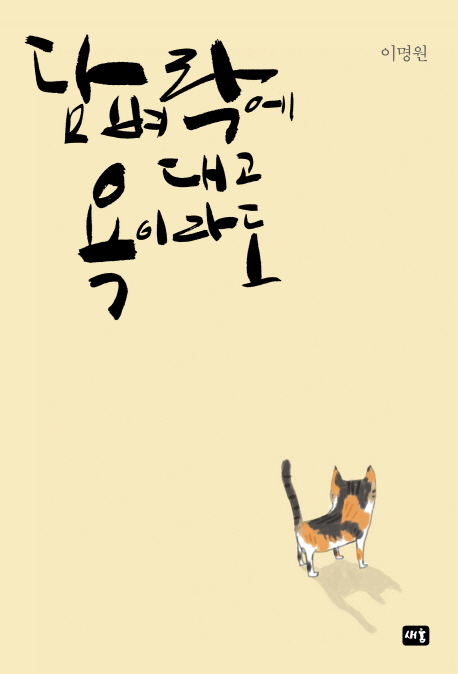 담벼락에
대고
욕이라도
이명원
새움